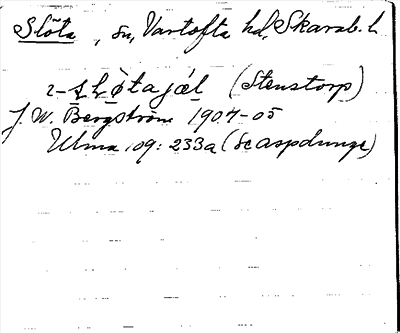 Slöta, sn, Vartofta hd, Skarab. l.
2-slø̀tajǽl (Stenstorp)
J. W. Bergström 1904-05
Ulma 109: 233a (se aspdunge)